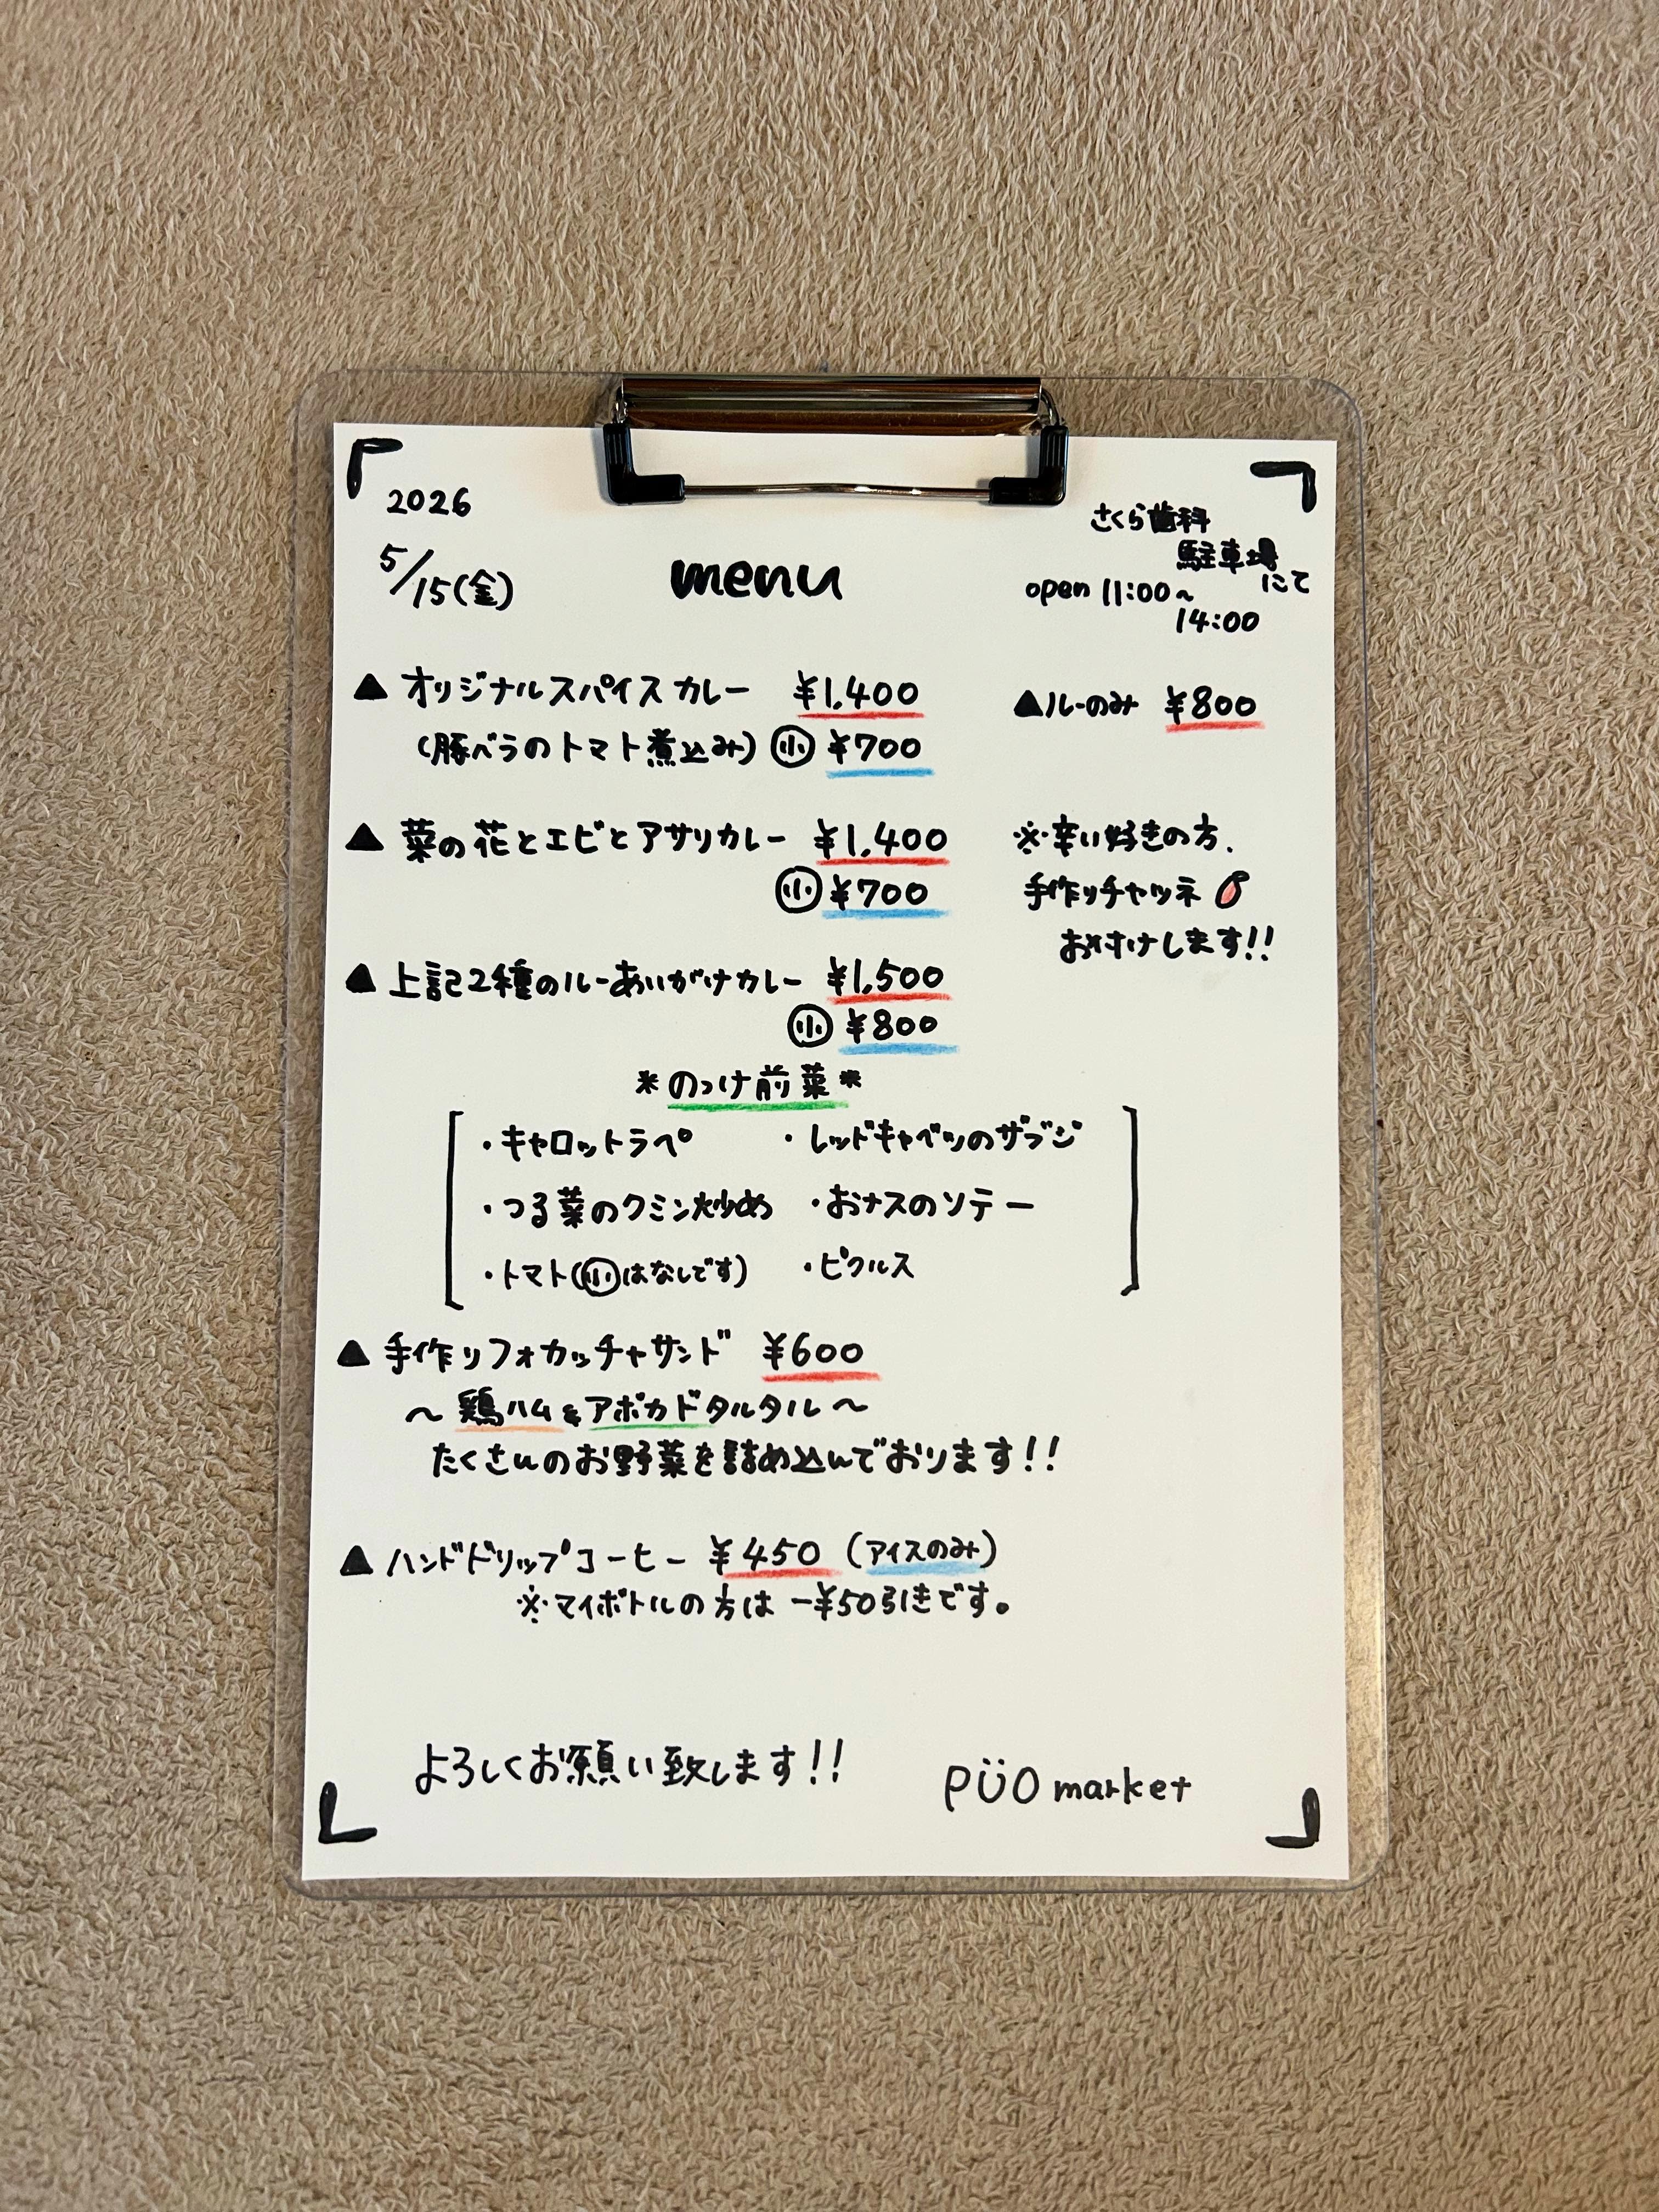 2026
5/15(金)
menu
さくら歯科
駐車場
にて
open 11:00~
14:00
▲ オリジナルスパイスカレー ¥1,400
(豚バラのトマト煮込み) 小 ¥700
▲ルーのみ ¥800
▲ 菜の花とエビとアサリカレー ¥1,400
小 ¥700
※辛い好きの方、
手作りチャツネ
お付けします!!
▲ 上記2種のルーあいがけカレー ¥1,500
小 ¥800
*のっけ前菜*
・キャロットラペ ・レッドキャベツのザブジ
・つる菜のクミン炒め ・おナスのソテー
・トマト(小はなしです) ・ピクルス
▲ 手作りフォカッチャサンド ¥600
~ 鶏ハム&アボカドタルタル ~
たくさんのお野菜を詰め込んでおります!!
▲ ハンドドリップコーヒー ¥450 (アイスのみ)
※マイボトルの方は -¥50引きです。
よろしくお願い致します!!
PÜO market